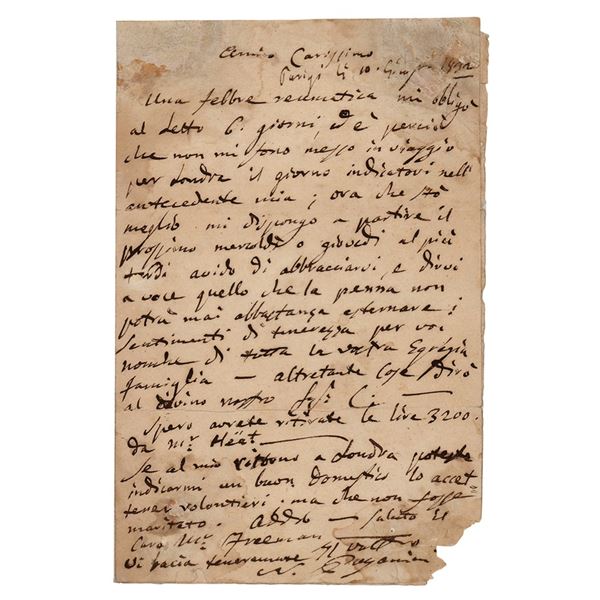 Amico Carissimo
Parigi li 10 Giugno 1832
Una febbre reumatica mi obligò
al letto 6 giorni, ed è perciò
che non mi sono messo in viaggio
per Londra il giorno indicatovi nell'
antecedente mia; ora che stò
meglio mi dispongo a partire il
prossimo mercoldì o giovedì al più
tardi avido di abbracciarvi, e dirvi
a voce quello che la penna non
potrà mai abbastanza esternare i
sentimenti di tenerezza per voi
nonche di tutta la vostra Egregia
famiglia — altretante cose dirò
al divino nostro
Spero avrete ritirate le lire 3200.
da Mr.
Se al mio ritorno a Londra poteste
indicarmi un buon domestico lo accet
terei volontieri. ma che non fosse
maritato. Addio — Saluto il
Caro Mr. Freeman
Vi bacia teneramente il vostro
N. Paganini